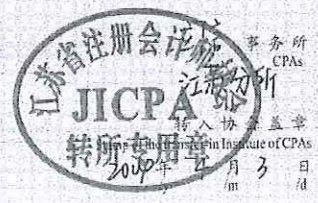 江苏省注册会计师协会
JICPA
转所专用章
事务所
CPAs
江苏分所
转入协会盖章
Stamp of the transfer-in Institute of CPAs
年 月 3 日
/m /d